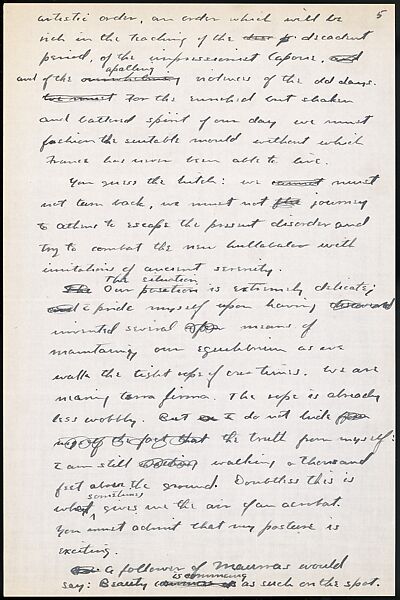 5
artistic order, an order which will be
rich in the teaching of the decadent
period, of the impressionist vapour, and
apalling
and of the violences of the old days.
We must For the enriched but shaken
and battered spirit of our day we must
fashion the suitable mould without which
France has never been able to live.
You guess the hitch: we cannot must
not turn back, we must not journey
to athens to escape the present disorder and
try to combat the new hullabaloo with
imitations of ancient serenity.
The situation
The Our position is extremely delicate;
and I pride myself upon having discovered
invented several means of
maintaining our equilibrium as we
walk the tight rope of our times. We are
nearing terra firma. The rope is already
less wobbly. But I do not hide
myself the fact that the truth from myself:
I am still walking a thousand
feet above the ground. Doubtless this is
sometimes
what gives me the air of an acrobat.
You must admit that my posture is
exciting.
A follower of Maurras would
is comming
say: Beauty as such on the spot.